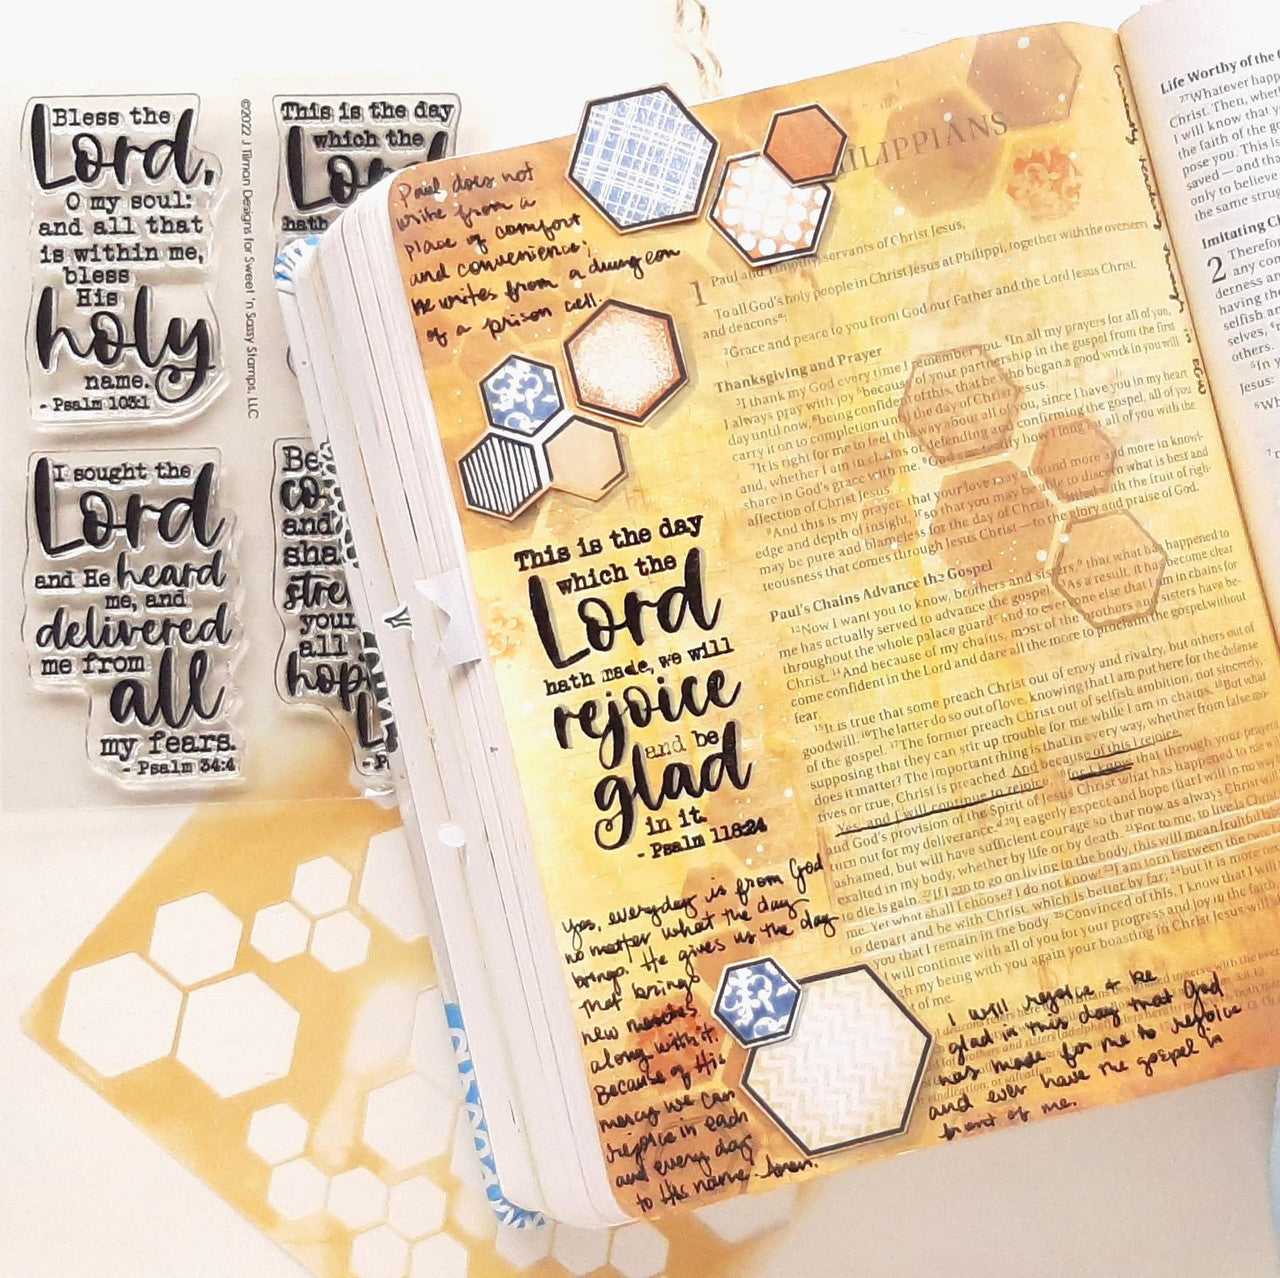 Bless the
Lord,
O my soul:
and all that
is within me,
bless
His
holy
name.
- Psalm 103:1
©2022 J Tilman Designs for Sweet 'n Sassy Stamps, LLC
This is the day
which the
hath
I sought the
Lord
and He heard
me, and
delivered
me from
all
my fears.
- Psalm 34:4
Be
and
your
all
Paul does not
write from a
place of comfort
and convenience;
he writes from a dungeon
of a prison cell.
This is the day
which the
Lord
hath made, we will
rejoice
and be
glad
in it.
- Psalm 118:24
Yes, everyday is from God
no matter what the day
brings. He gives us the day
that brings
new
along with it.
Because of His
mercy we can
rejoice in each
and every day
to His name Amen.
ILIPPIANS
1 Paul and Timothy, servants of Christ Jesus,
To all God's holy people in Christ Jesus at Philippi, together with the overseers
and deacons:
2Grace and peace to you from God our Father and the Lord Jesus Christ.
Thanksgiving and Prayer
3I thank my God every time I remember you. 4In all my prayers for all of you,
I always pray with joy 5because of your partnership in the gospel from the first
day until now, 6being confident of this, that he who began a good work in you will
carry it on to completion until the day of Christ Jesus.
7It is right for me to feel this way about all of you, since I have you in my heart
and, whether I am in chains or defending and confirming the gospel, all of you
share in God's grace with me. 8God can testify how I long for all of you with the
affection of Christ Jesus.
9And this is my prayer: that your love may abound more and more in knowl-
edge and depth of insight, 10so that you may be able to discern what is best and
may be pure and blameless for the day of Christ, 11filled with the fruit of right-
teousness that comes through Jesus Christ—to the glory and praise of God.
Paul's Chains Advance the Gospel
12Now I want you to know, brothers and sisters, that what has happened to
me has actually served to advance the gospel. 13As a result, it has become clear
throughout the whole palace guard and to everyone else that I am in chains for
Christ. 14And because of my chains, most of the brothers and sisters have be-
come confident in the Lord and dare all the more to proclaim the gospel without
fear.
15It is true that some preach Christ out of envy and rivalry, but others out of
goodwill. 16The latter do so out of love, knowing that I am put here for the defense
of the gospel. 17The former preach Christ out of selfish ambition, not sincerely,
supposing that they can stir up trouble for me while I am in chains. 18But what
does it matter? The important thing is that in every way, whether from false mo-
tives or true, Christ is preached. And because of this I rejoice.
Yes, and I will continue to rejoice, for I know that through your prayers
and God's provision of the Spirit of Jesus Christ what has happened to me will
turn out for my deliverance. 20I eagerly expect and hope that I will in no way be
ashamed, but will have sufficient courage so that now as always Christ will be
exalted in my body, whether by life or by death. 21For to me, to live is Christ
to die is gain. 22If I am to go on living in the body, this will mean fruitful
me. Yet what shall I choose? I do not know! 23I am torn between the two:
to depart and be with Christ, which is better by far; 24but it is more
you that I remain in the body. 25Convinced of this, I know that I will
I will continue with all of you for your progress and joy in the faith
my being with you again your boasting in Christ Jesus will
of me.
I will rejoice & be
glad in this day that God
has made for me to rejoice
and ever have the gospel in
front of me.
Life Worthy of the
27Whatever happ
Christ. Then, whet
I will know that y
the faith of the g
pose you. This is
saved—and that
only to believe
the same strug
Imitating Ch
2 Therefor
any com
derness and
having the
selfish
selves,
others.
5In y
Jesus:
6Wh